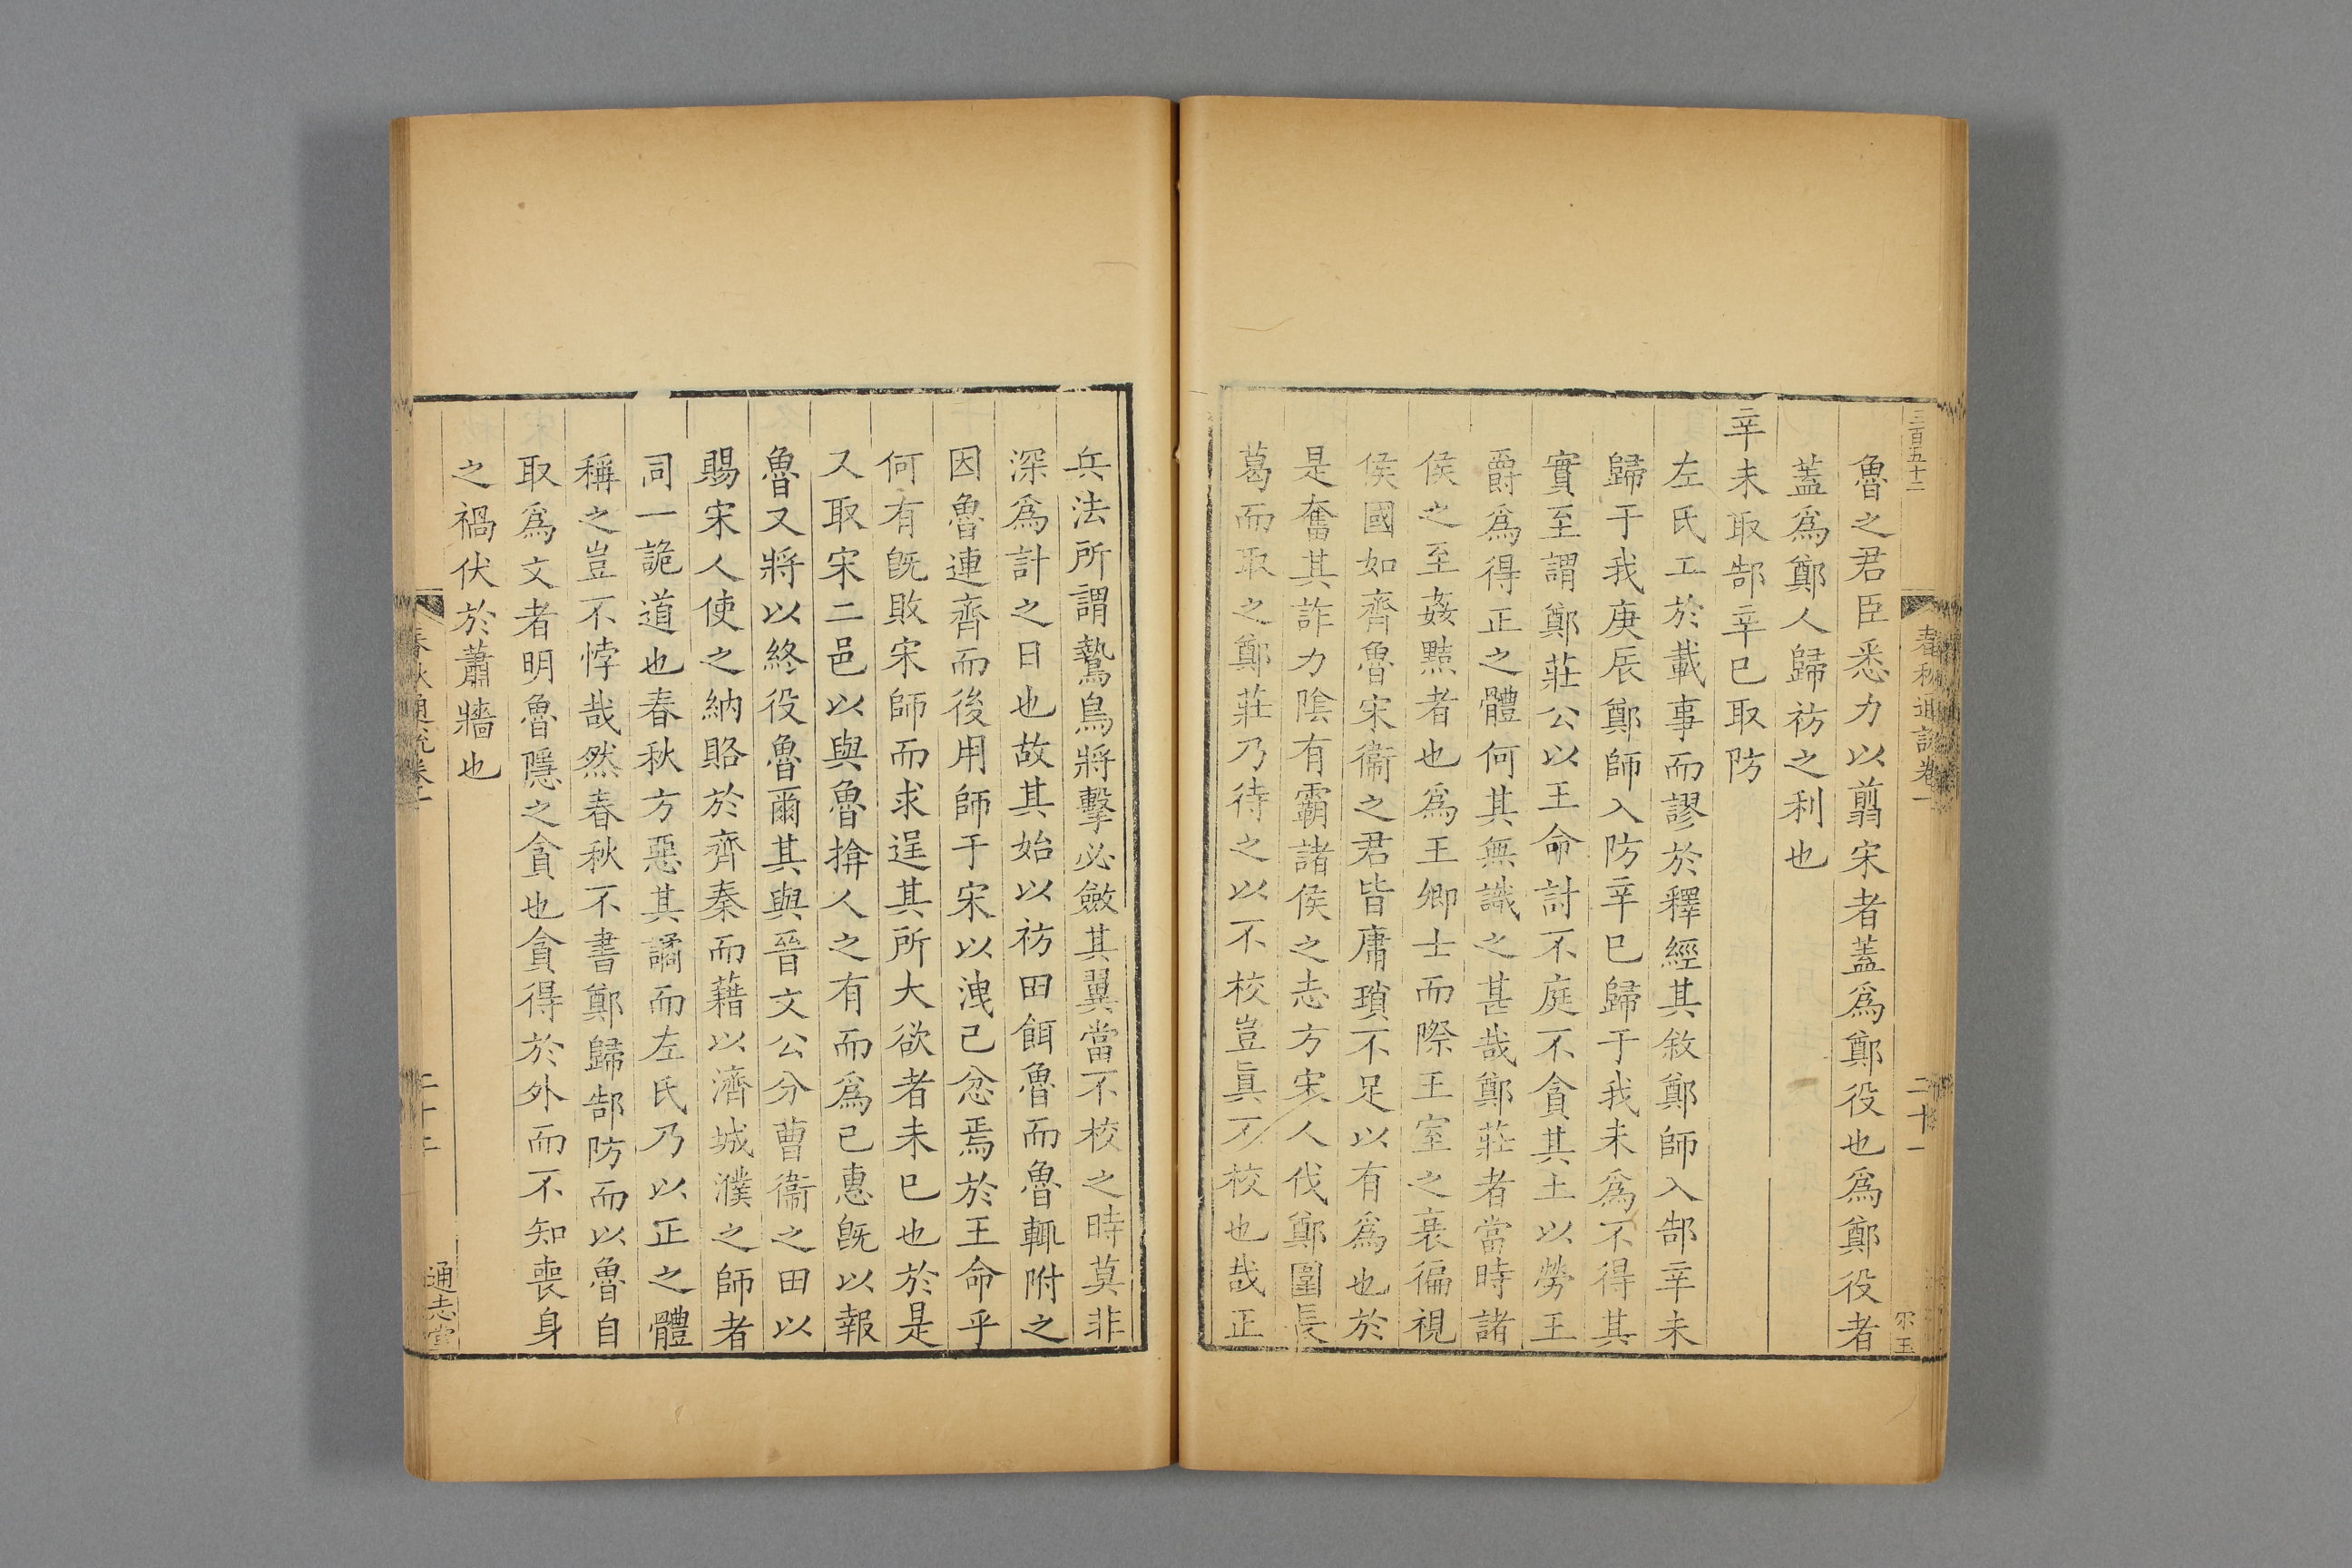 三百五十二
春秋通說卷一
二十一
宗玉
魯之君臣悉力以翦宋者蓋爲鄭役也爲鄭役者
蓋爲鄭人歸祊之利也
辛未取郜辛巳取防
左氏工於載事而謬於釋經其敘鄭師入郜辛未
歸于我庚辰鄭師入防辛巳歸于我未爲不得其
實至謂鄭莊公以王命討不庭不貪其土以勞王
爵爲得正之體何其無識之甚哉鄭莊者當時諸
侯之至姦黠者也爲王卿士而際王室之衰徧視
侯國如齊魯宋衞之君皆庸瑣不足以有爲也於
是奮其詐力陰有霸諸侯之志方宋人伐鄭圍長
葛而取之鄭莊乃待之以不校豈眞不校也哉正
兵法所謂鷙鳥將擊必斂其翼當不校之時莫非
深爲計之日也故其始以祊田餌魯而魯輒附之
因魯連齊而後用師于宋以洩己忿焉於王命乎
何有旣敗宋師而求逞其所大欲者未已也於是
又取宋二邑以與魯揜人之有而爲己惠旣以報
魯又將以終役魯爾其與晉文公分曹衞之田以
賜宋人使之納賂於齊秦而藉以濟城濮之師者
同一詭道也春秋方惡其譎而左氏乃以正之體
稱之豈不悖哉然春秋不書鄭歸郜防而以魯自
取爲文者明魯隱之貪也貪得於外而不知喪身
之禍伏於蕭牆也
通志堂